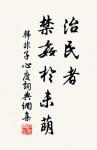 治民者
禁姦於未萌
韓非子心度詞典網集